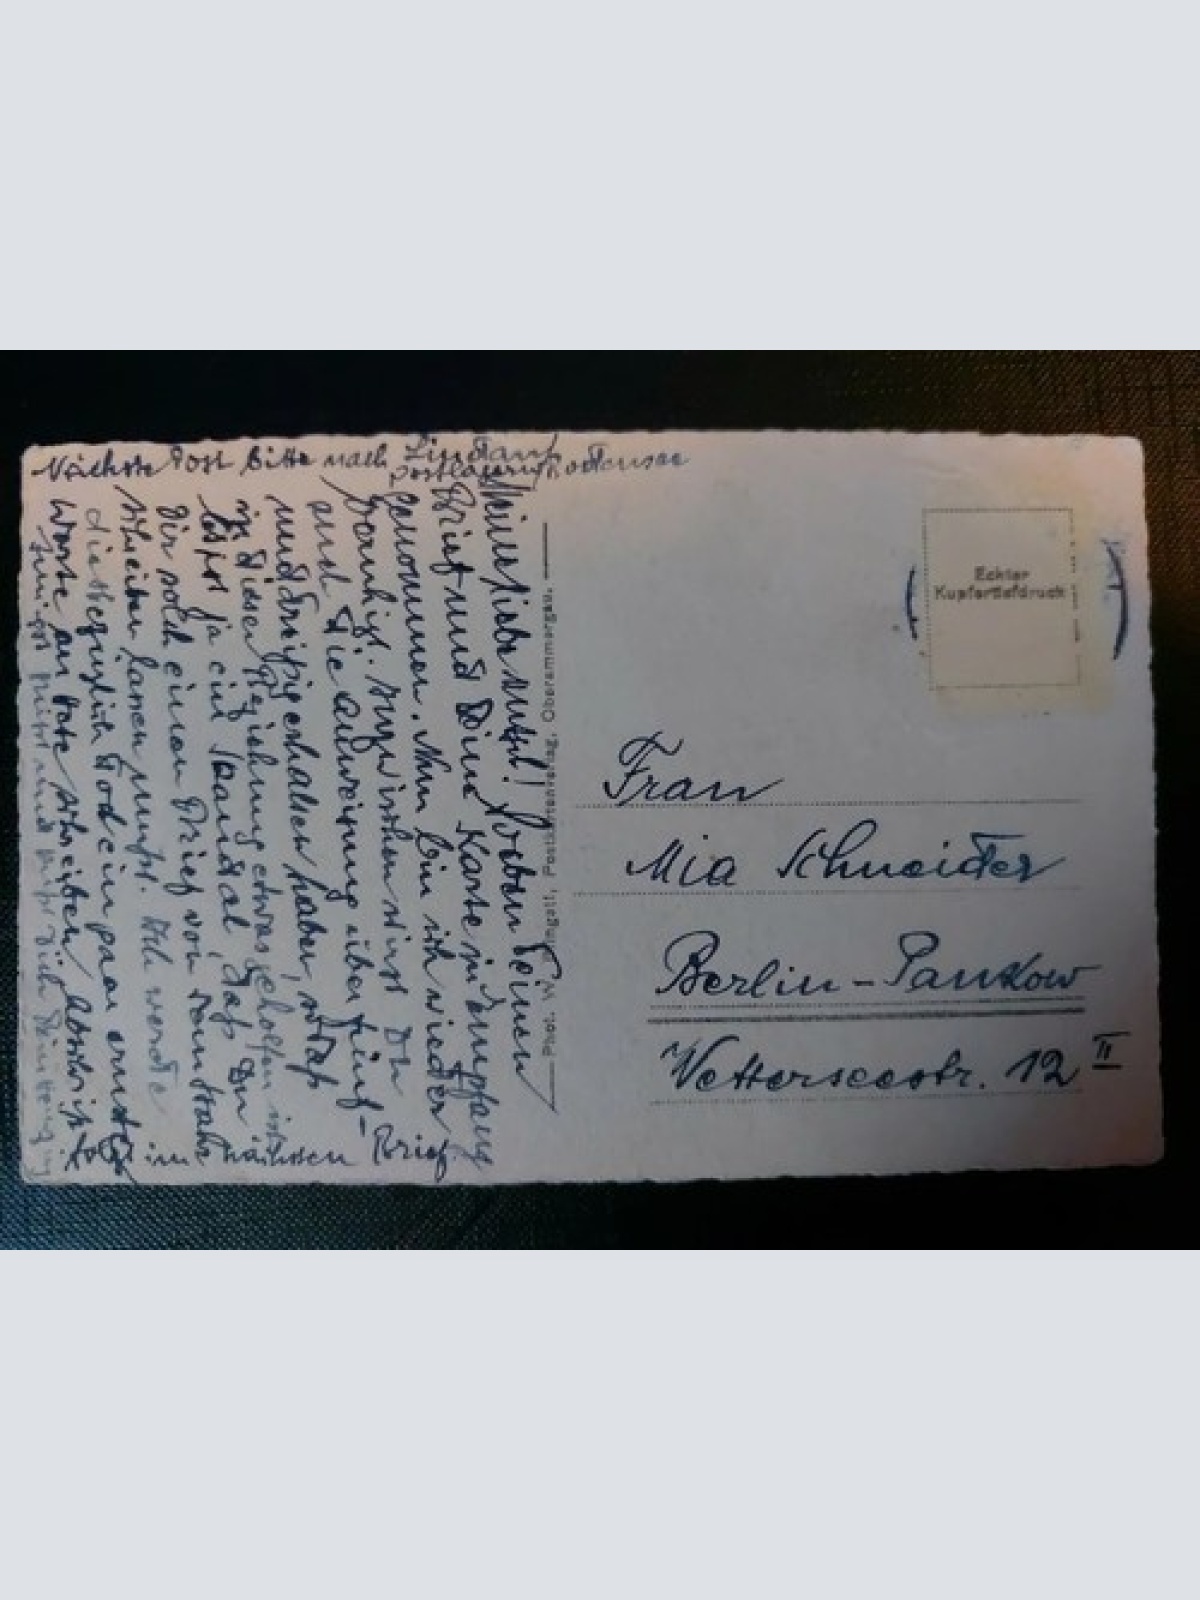 Nächste Post bitte nach Lindau/
postlagernd Bodensee
Meine liebe Mutsch! Soeben Deinen
Brief und Deine Karte in Empfang
genommen. Nun bin ich wieder
beruhigt. Inzwischen wirst Du
auch die Anweisung über fünf-
unddreißig erhalten haben, sodaß
in dieser Beziehung etwas geholfen ist.
Es ist ja ein Skandal, daß Du
Dir solch einen Brief von
schreiben lassen mußt. Ich werde
diesbezüglich doch ein paar ernste
Worte an schreiben.
innigst küßt und grüßt Dich Dein
im nächsten Brief
Phot. W. postkartenverlag, Oberammergau.
Echter
Kupfertiefdruck
Frau
Mia Schneider
Berlin-Pankow
Vetterseestr. 12 II